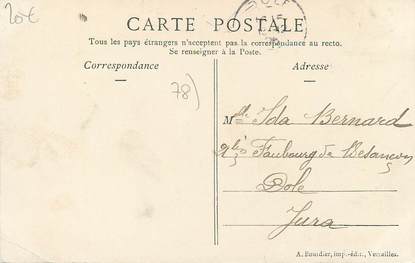 20€
CARTE POSTALE
Tous les pays étrangers n'acceptent pas la correspondance au recto.
Se renseigner à la Poste.
Correspondance
Adresse
78)
Mlle Ida Bernard
Faubourg de Besançon
Dole
Jura
A. Bourdier, imp.-édit., Versailles.